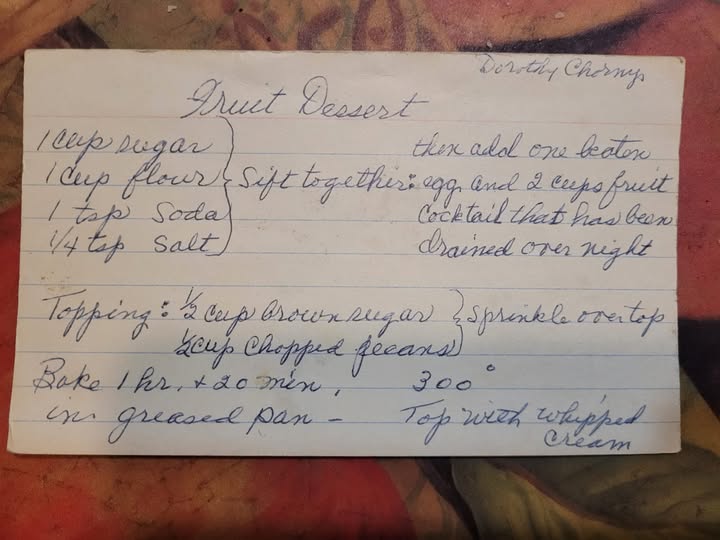 Dorothy Chornys
Fruit Dessert
1 cup sugar
1 cup flour
1 tsp Soda
1/4 tsp Salt
Sift together:
then add one beaten
egg and 2 cups fruit
Cocktail that has been
drained over night
Topping: 1/2 cup brown sugar
1/2 cup chopped pecans
Sprinkle over top
Bake 1 hr. + 20 min, 300°
in greased pan - Top with whipped
cream